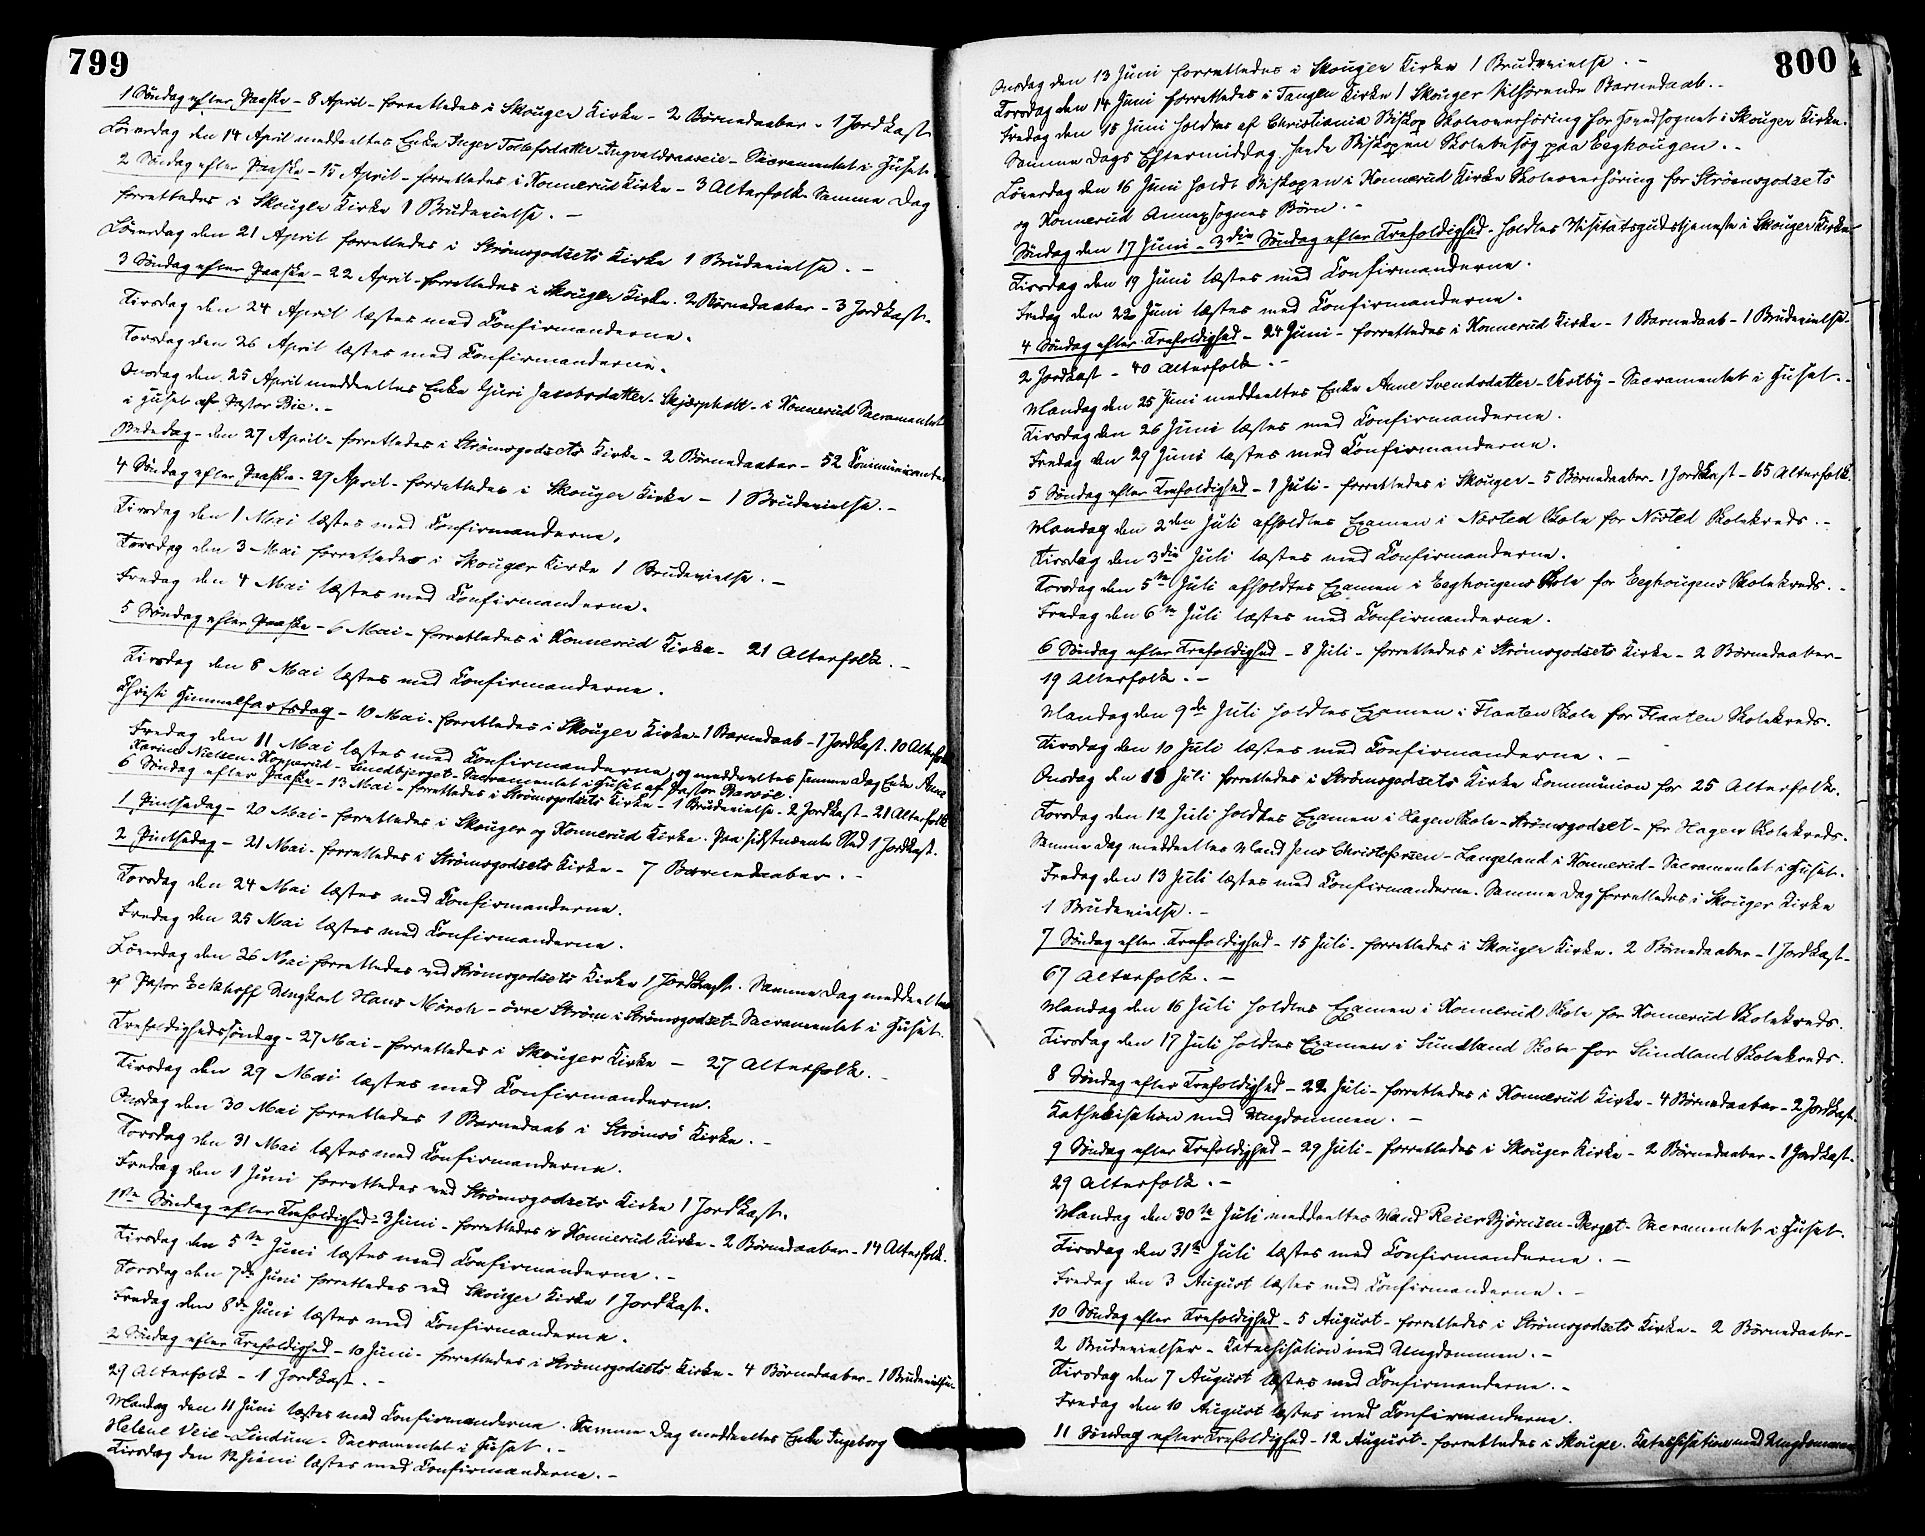 799
1 Søndag efter Paaske - 8 April - forrettedes i Skouger Kirke - 2 Børnedaaber - 1 Jordkast
Løverdag den 14 April meddeeltes Enke Inger Tollefsdatter - - Sacramentet i Huset.
2 Søndag efter Paaske - 15 April - forrettedes i Konnerud Kirke - 3 Alterfolk. Samme Dag
forrettedes i Skouger Kirke 1 Brudevielse. -
Løverdag den 21 April forrettedes i Strømsgodsets Kirke 1 Brudevielse. -
3 Søndag efter Paaske - 22 April - forrettedes i Skouger Kirke. 2 Børnedaaber - 3 Jordkast.
Tirsdag den 24 April læstes med Confirmanderne.
Torsdag den 26 April læstes med Confirmanderne.
Onsdag den 25 April meddeeltes Enke Guri Jacobsdatter - Skjærpholt - i Konnerud Sacramentet
i Huset af Pastor Bie. -
Bededag - den 27 April - forrettedes i Strømsgodsets Kirke - 2 Børnedaaber - 52 Communicanter
4 Søndag efter Paaske - 29 April - forrettedes i Skouger Kirke - 1 Brudevielse. -
Tirsdag den 1 Mai læstes med Confirmanderne.
Torsdag den 3 Mai forrettedes i Skouger Kirke 1 Brudevielse. -
Fredag den 4 Mai læstes med Confirmanderne.
5 Søndag efter Paaske - 6 Mai - forrettedes i Konnerud Kirke - 21 Alterfolk. -
Tirsdag den 8 Mai læstes med Confirmanderne.
Christi Himmelfartsdag - 10 Mai - forrettedes i Skouger Kirke - 1 Barnedaab - 1 Jordkast. 10 Alterfolk
Fredag den 11 Mai læstes med Confirmanderne og meddeeltes samme Dag Enke Anne
Karine Nielsen - Kopperud - Lindbjerget - Sacramentet i Huset af Pastor
6 Søndag efter Paaske - 13 Mai - forrettedes i Strømsgodsets Kirke - 1 Brudevielse - 2 Jordkast - 21 Alterfolk
1 Pintsedag - 20 Mai - forrettedes i Skouger og Konnerud Kirke. Paa sidstnævnte Sted 1 Jordkast.
2 Pintsedag - 21 Mai - forrettedes i Strømsgodsets Kirke - 7 Børnedaaber. -
Torsdag den 24 Mai læstes med Confirmanderne.
Fredag den 25 Mai læstes med Confirmanderne.
Løverdag den 26 Mai forrettedes ved Strømsgodsets Kirke 1 Jordkast. Samme Dag meddeeltes
af Pastor Eckhoff Ungkarl Hans Mørch - øvre Strøm i Strømsgodset - Sacramentet i Huset.
Trefoldighedssøndag - 27 Mai - forrettedes i Skouger Kirke - 27 Alterfolk. -
Tirsdag den 29 Mai læstes med Confirmanderne.
Onsdag den 30 Mai forrettedes 1 Barnedaab i Strømsø Kirke. -
Torsdag den 31 Mai læstes med Confirmanderne.
Fredag den 1 Juni forrettedes ved Strømsgodsets Kirke 1 Jordkast.
1ste Søndag efter Trefoldighed - 3 Juni - forrettedes i Konnerud Kirke - 2 Børnedaaber - 14 Alterfolk.
Tirsdag den 5te Juni læstes med Confirmanderne. -
Torsdag den 7de Juni forrettedes ved Skouger Kirke 1 Jordkast.
Fredag den 8de Juni læstes med Confirmanderne.
2 Søndag efter Trefoldighed - 10 Juni - forrettedes i Strømsgodsets Kirke - 4 Børnedaaber - 1 Brudevielse
29 Alterfolk - 1 Jordkast. -
Mandag den 11 Juni læstes med Confirmanderne. Samme Dag meddeeltes Enke Ingeborg
Helene Veie - Lindum - Sacramentet i Huset. -
Tirsdag den 12 Juni læstes med Confirmanderne. -
800
Onsdag den 13 Juni forrettedes i Skouger Kirke 1 Brudevielse. -
Torsdag den 14 Juni forrettedes i Tangen Kirke 1 Skouger tilhørende Barnedaab. -
Fredag den 15 Juni holdtes af Christiania Biskop Skoleoverhøring for Hovedsognet i Skouger Kirke.
Samme Dags Eftermiddag havde Biskopen Skolebesøg paa Eeghougen. -
Løverdag den 16 Juni holdt Biskopen i Konnerud Kirke Skoleoverhøring for Strømsgodsets
og Konnerud Annexsognes Børn. -
Søndag den 17 Juni - 3die Søndag efter Trefoldighed - holdtes Visitatsgudstjeneste i Skouger Kirke
Tirsdag den 19 Juni læstes med Confirmanderne.
Fredag den 22 Juni læstes med Confirmanderne.
4 Søndag efter Trefoldighed - 24 Juni - forrettedes i Konnerud Kirke - 1 Barnedaab - 1 Brudevielse -
2 Jordkast - 40 Alterfolk. -
Mandag den 25 Juni meddeeltes Enke Anne Svendsdatter - Vestby - Sacramentet i Huset. -
Tirsdag den 26 Juni læstes med Confirmanderne.
Fredag den 29 Juni læstes med Confirmanderne.
5 Søndag efter Trefoldighed - 1 Juli - forrettedes i Skouger - 5 Børnedaaber - 1 Jordkast - 65 Alterfolk.
Mandag den 2den Juli afholdtes Examen i Nøsted Skole for Nøsted Skolekreds. -
Tirsdag den 3die Juli læstes med Confirmanderne.
Torsdag den 5te Juli afholdtes Examen i Eeghougens Skole for Eeghougens Skolekreds. -
Fredag den 6te Juli læstes med Confirmanderne.
6 Søndag efter Trefoldighed - 8 Juli - forrettedes i Strømsgodsets Kirke - 2 Børnedaaber -
19 Alterfolk. -
Mandag den 9de Juli holdtes Examen i Flaaten Skole for Flaaten Skolekreds.
Tirsdag den 10 Juli læstes med Confirmanderne. -
Onsdag den 11 Juli forrettedes i Strømsgodsets Kirke Communion for 25 Alterfolk.
Torsdag den 12 Juli holdtes Examen i Hagen Skole - Strømsgodset - for Hagen Skolekreds.
Samme Dag meddeeltes Mand Jens Christofersen - Langeland i Konnerud - Sacramentet i Huset.
Fredag den 13 Juli læstes med Confirmanderne. Samme Dag forrettedes i Skouger Kirke
1 Brudevielse. -
7 Søndag efter Trefoldighed - 15 Juli - forrettedes i Skouger Kirke. 2 Børnedaaber - 1 Jordkast -
67 Alterfolk. -
Mandag den 16 Juli holdtes Examen i Konnerud Skole for Konnerud Skolekreds.
Tirsdag den 17 Juli holdtes Examen i Sundland Skole for Sundland Skolekreds.
8 Søndag efter Trefoldighed - 22 Juli - forrettedes i Konnerud Kirke - 4 Børnedaaber - 2 Jordkast.
Kathekisation med Ungdommen. -
9 Søndag efter Trefoldighed - 29 Juli - forrettedes i Skouger Kirke - 2 Børnedaaber - 1 Jordkast.
29 Alterfolk. -
Mandag den 30te Juli meddeeltes Mand Reier Bjørnsen - Berget - Sacramentet i Huset.
Tirsdag den 31te Juli læstes med Confirmanderne. -
Fredag den 3 August læstes med Confirmanderne. -
10 Søndag efter Trefoldighed - 5 August - forrettedes i Strømsgodsets Kirke - 2 Børnedaaber -
2 Brudevielser - Katechisation med Ungdommen. -
Tirsdag den 7 August læstes med Confirmanderne. -
Fredag den 10 August læstes med Confirmanderne.
11 Søndag efter Trefoldighed - 12 August - forrettedes i Skouger. Katechisation med Ungdommen